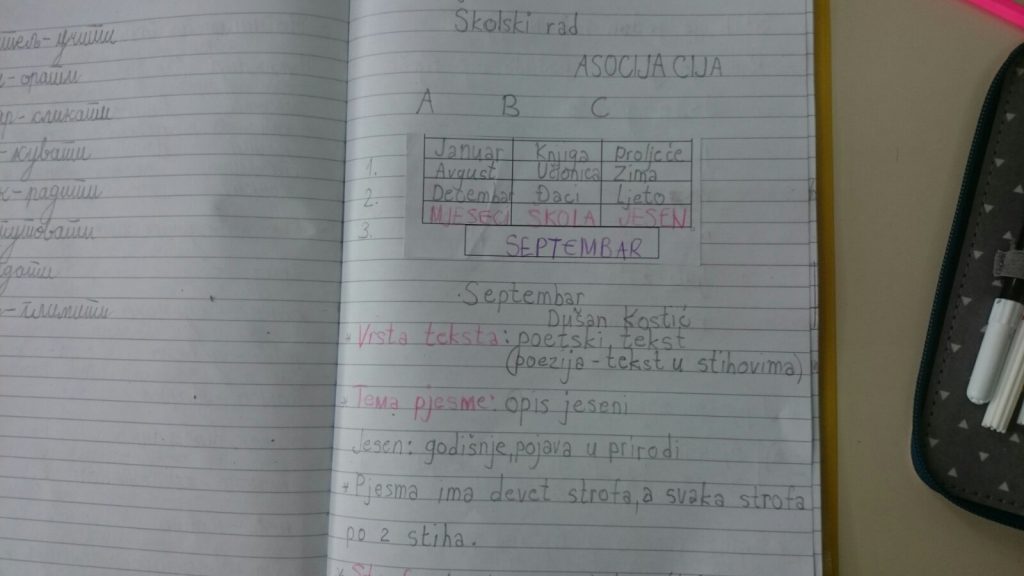 učiti
- орати
- сликати
- кувати
- радити
Školski rad
ASOCIJACIJA
A B C
Januar Knjiga Proljeće
1. Avgust Učionica Zima
2. Decembar Đaci Ljeto
MJESECI ŠKOLA JESEN
3.
SEPTEMBAR
Septembar
Dušan Kostić
Vrsta teksta: poetski tekst
(poezija - tekst u stihovima)
Tema pjesme: opis jeseni
Jesen: godišnje, pojava u prirodi
Pjesma ima devet strofa, a svaka strofa
po 2 stiha.